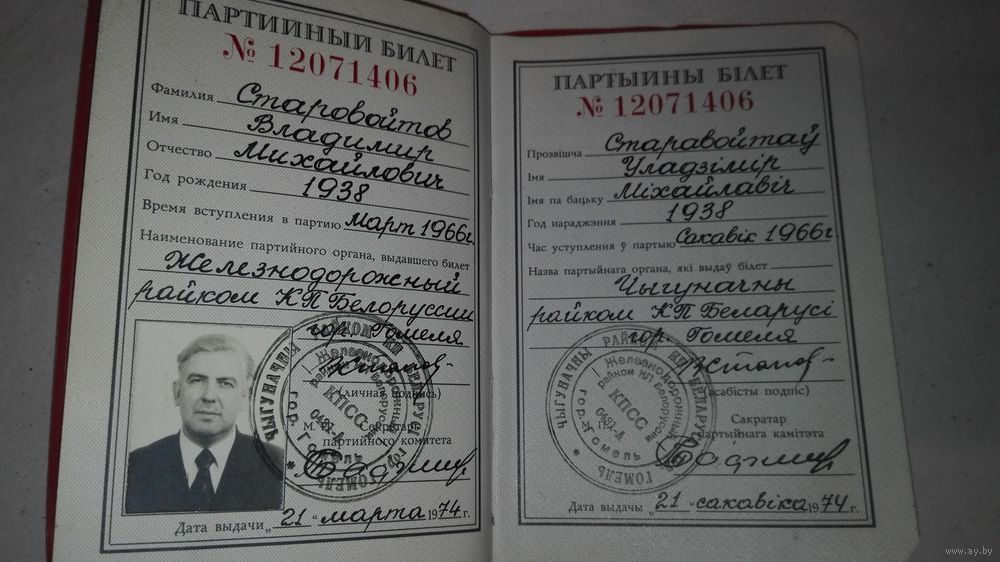 ПАРТИЙНЫЙ БИЛЕТ
№ 12071406
Фамилия Старовойтов
Имя Владимир
Отчество Михайлович
Год рождения 1938
Время вступления в партию март 1966 г.
Наименование партийного органа, выдавшего билет
Железнодорожный
райком КП Белоруссии
гор. Гомеля
(личная подпись)
М. П. Секретарь
партийного комитета
Дата выдачи „21“ марта 1974 г.
ЧЫГУНАЧНЫ РАЙКОМ КП БЕЛАРУСІ
гор. Гомель
* ГОМЕЛЬ *
Железнодорожный
райком КП Белоруссии
КПСС
0491-А
ПАРТЫЙНЫ БІЛЕТ
№ 12071406
Прозвішча Старавойтаў
Імя Уладзімір
Імя па бацьку Міхайлавіч
Год нараджэння 1938
Час уступлення ў партыю Сакавік 1966 г.
Назва партыйнага органа, які выдаў білет
Чыгуначны
райком КП Беларусі
гор. Гомеля
(асабісты подпіс)
Сакратар
партыйнага камітэта
Дата выдачы „21“ сакавіка 1974 г.
ЧЫГУНАЧНЫ РАЙКОМ КП БЕЛАРУСІ
гор. Гомель
* ГОМЕЛЬ *
Железнодорожный
райком КП Белоруссии
КПСС
0491-А
www.ay.by